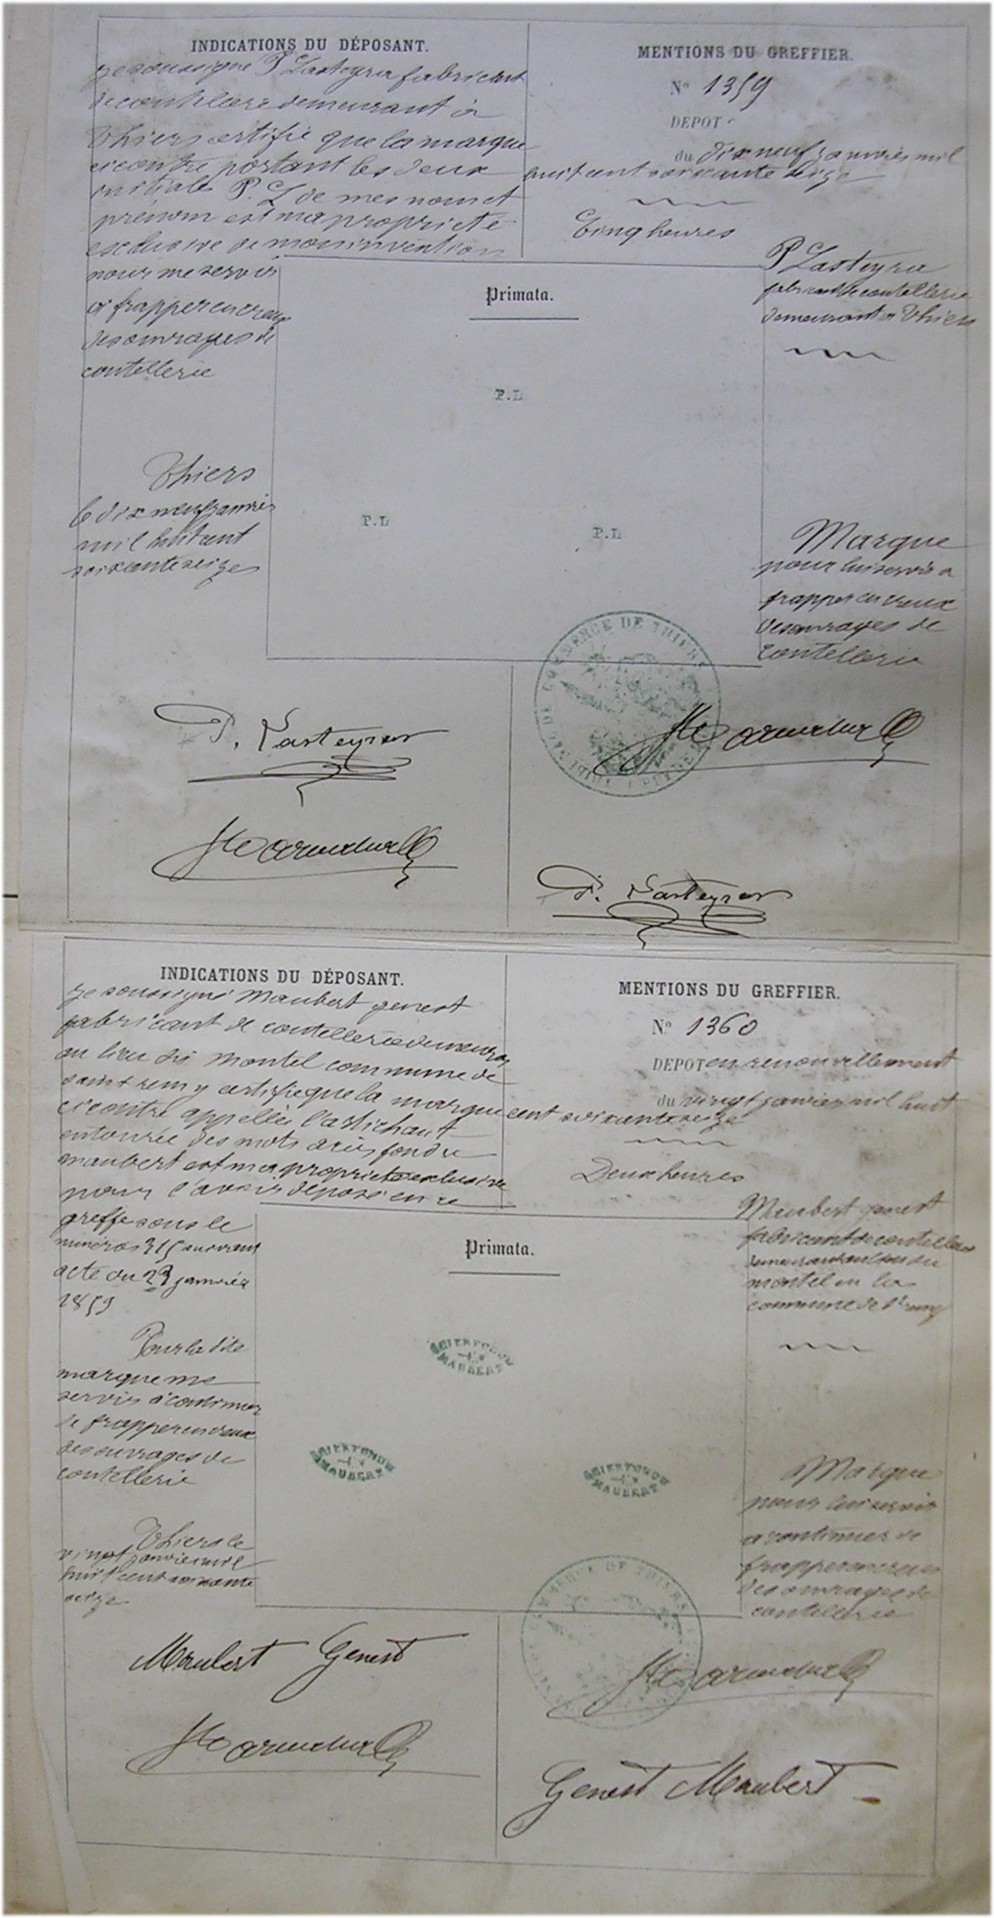 INDICATIONS DU DÉPOSANT.
je soussigné P Lasteyra fabricant
de coutellerie demeurant à
Thiers certifie que la marque
ci contre portant les deux
initiales P. L de mes nom et
prénom est ma propriété
exclusive de mon invention
pour me servir
à frapper en creux
des ouvrages de
coutellerie
Thiers
le dix neuf janvier
mil huit cent
soixante seize
MENTIONS DU GREFFIER.
N° 1359
DEPOT
du dix neuf janvier mil
huit cent soixante seize
Cinq heures
P Lasteyra
fabricant de coutellerie
demeurant à Thiers
Primata.
P.L
P.L
P.L
Marque
pour lui servir a
frapper en creux
des ouvrages de
coutellerie
COMMERCE DE THIERS
P. Lasteyras
P. Lasteyras
INDICATIONS DU DÉPOSANT.
je soussigné Maubert genest
fabricant de coutellerie demeurant
au lieu dit Montel commune de
saint remy certifie que la marque
ci contre appellée l'artichaut
entourée des mots acier fondu
maubert est ma propriété exclusive
pour l'avoir déposé en ce
greffe sous le
numéros 315 suivant
acte du 23 janvier
1859
Pour la dite
marque me
servir à continuer
de frapper en creux
des ouvrages de
coutellerie
Thiers le
vingt janvier mil
huit cent soixante
seize
MENTIONS DU GREFFIER.
N° 1360
DEPOT en renouvellement
du vingt janvier mil huit
cent soixante seize
Deux heures
Maubert genest
fabricant de coutellerie
demeurant au lieu du
montel en la
commune de St remy
Primata.
ACIER FONDU
MAUBERT
ACIER FONDU
MAUBERT
ACIER FONDU
MAUBERT
Marque
pour lui servir
a continuer de
frapper en creux
des ouvrages de
coutellerie
COMMERCE DE THIERS
Maubert Genest
Genest Maubert